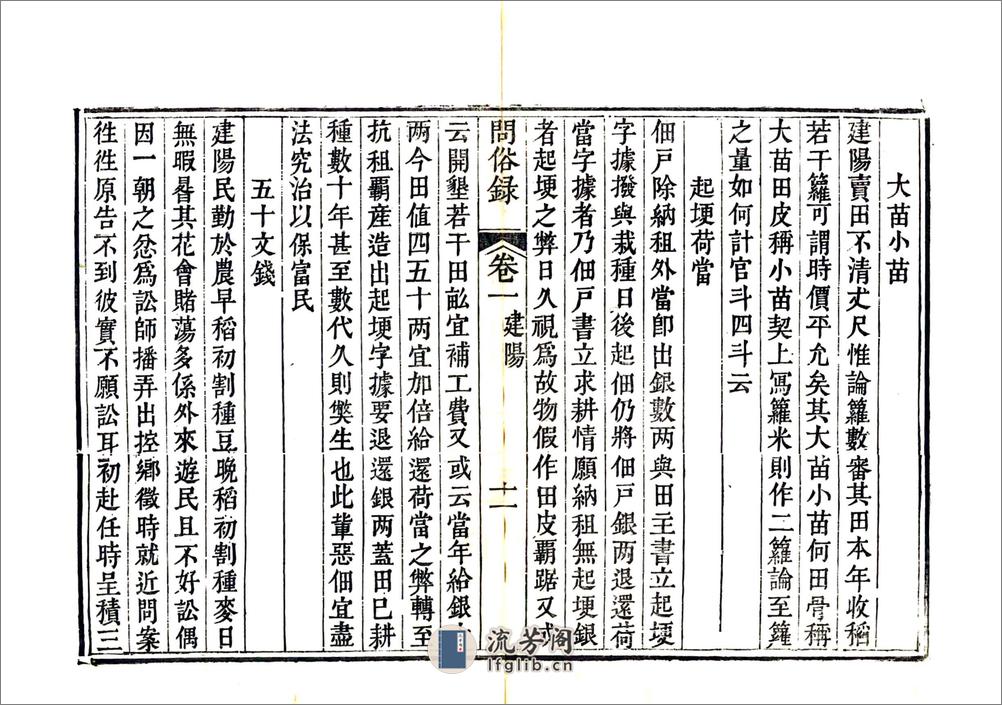 大苗小苗
建陽賣田不清丈尺惟論籮數審其田本年收稻
若干籮可謂時價平允矣其大苗小苗何田骨稱
大苗田皮稱小苗契上寫籮米則作二籮論至籮
之量如何計官斗四斗云
起埂荷當
佃戶除納租外當卽出銀數两與田主書立起埂
字據撥與栽種日後起佃仍將佃戶銀两退還荷
當字據者乃佃戶書立求耕情願納租無起埂銀
者起埂之弊日久視爲故物假作田皮霸踞又或
問俗録 卷一 建陽 十一
云開墾若干田畝宜補工費又或云當年給銀
两今田值四五十两宜加倍給還荷當之弊轉至
抗租霸產造出起埂字據要退還銀两蓋田已耕
種數十年甚至數代久則獘生也此輩惡佃宜盡
法究治以保富民
五十文錢
建陽民勤於農早稻初割種豆晚稻初割種麥日
無暇晷其花會賭蕩多係外來遊民且不好訟偶
因一朝之忿爲訟師播弄出控鄉徵時就近問案
徃徃原告不到彼實不願訟耳初赴任時呈積三
流芳阁
lfglib.cn